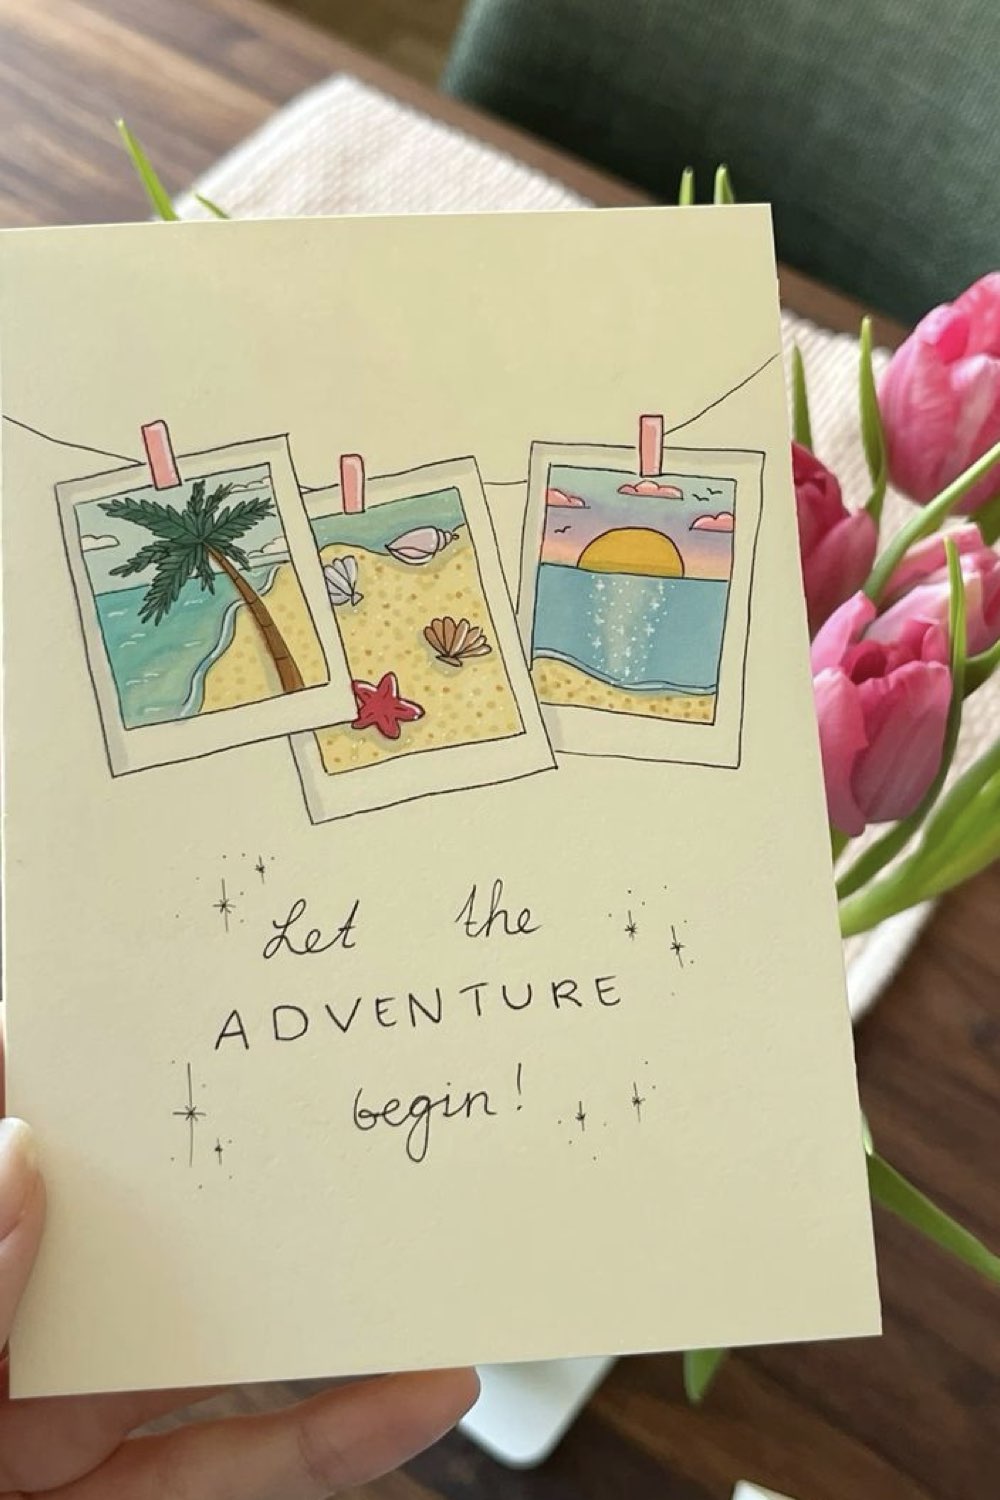 Let the
ADVENTURE
begin!